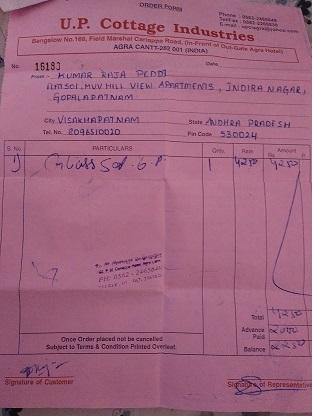 ORDER FORM
Phone : 0562-2265849
TeleFax : 0562-2265838
U.P. Cottage Industries
Bangelow No.160, Field Marshal Cariappa Road, (In-Front of Out-Gate Agra Hotel)
AGRA CANTT-282 001 (INDIA)
No. 16180 Date
KUMAR RAJA PEDDI
MVV HILL VIEW APARTMENTS, INDIRA NAGAR,
GOPALAPATNAM
City VISAKHAPATNAM State ANDHRA PRADESH
Tel. No. 2096510020 Pin Code 530024
S. No. PARTICULARS Qnty. Rate Amount
Rs. P.
1) Glass Set 6 P. 1 4250 4250
PH: 0562 - 2265849
Total 4250
Advance Paid 2000
Balance 2250
Once Order placed not be cancelled
Subject to Terms & Condition Printed Overleaf.
Signature of Customer Signature of Representative